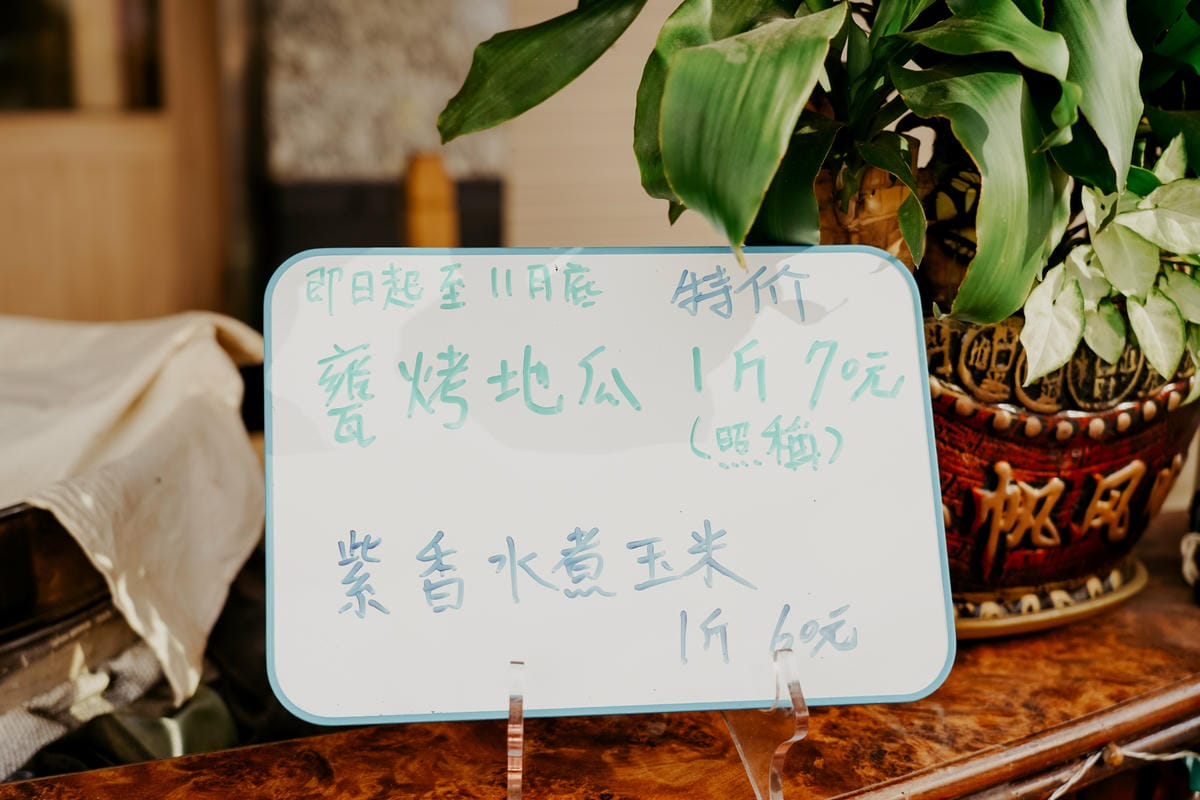 即日起至11月底 特价
甕烤地瓜 1斤70元
(照稱)
紫香水煮玉米
1斤60元
帆風